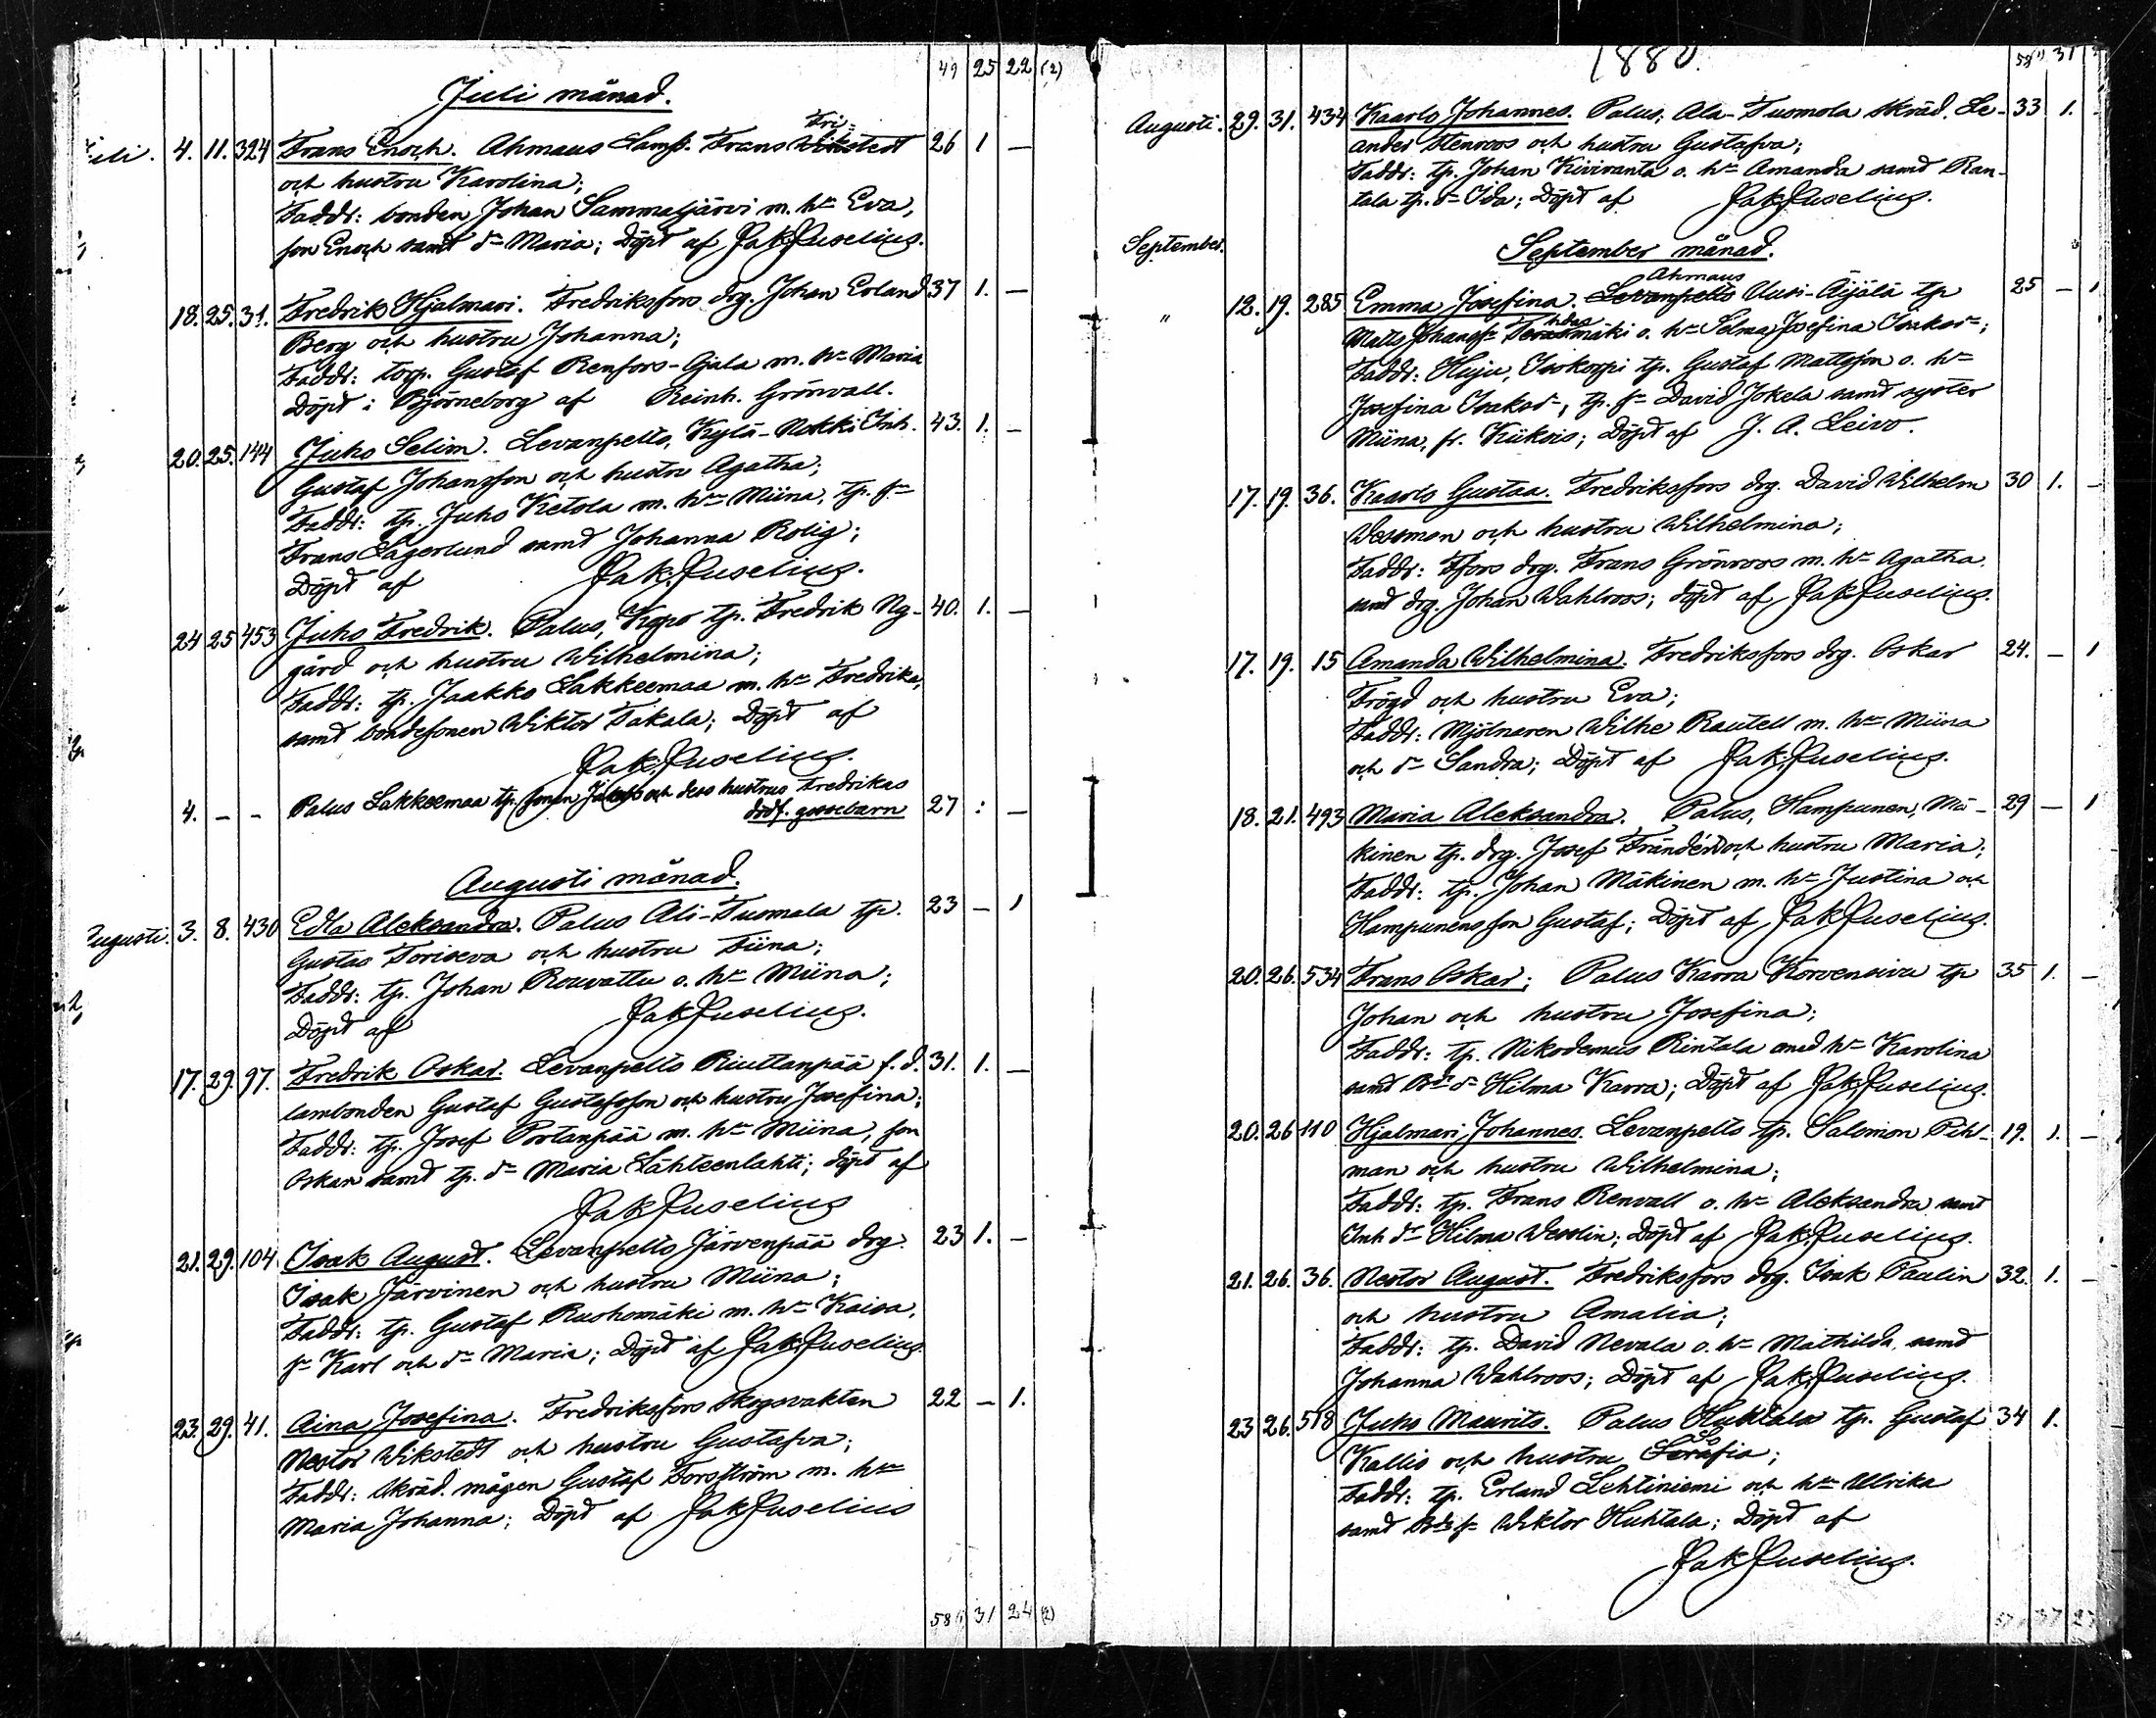 49 25 22 (2)
Juli månad.
Fri-
4. 11. 324 Frans Enoch. Ahmaus Lamp. Frans Wikstedt 26 1 —
och hustru Karolina;
Faddr: bonden Johan Sammaljärvi m. hu Eva,
son Enoch samt dr Maria; Döpt af Jak. Juselius.
18. 25. 31. Fredrik Hjalmari. Fredriksfors drg. Johan Erland 37 1. —
Berg och hustru Johanna;
Faddr: torp. Gustaf Renfors-Ojala m. hu Maria
Döpt i Björneborg af Reinh. Grönvall.
20. 25. 144 Juho Selim. Levanpelto, Kylä-Nokki Inh. 43. 1. —
Gustaf Johansson och hustru Agatha;
Faddr: tp. Juho Ketola m. hu Miina, tp. sn
Frans Lagerlund samt Johanna Rolig;
Döpt af Jak. Juselius.
24 25 453 Juho Fredrik. Palus, Kopo tp. Fredrik Ny- 40. 1. —
gård och hustru Wilhelmina;
Faddr: tp. Jaakko Lakkeemaa m. hu Fredrika,
samt bondesonen Wiktor Takala; Döpt af
Jak. Juselius.
4. — — Palus Lakkeemaa tp. sonen Jakobs och dess hustrus Fredrikas
dödf. gossebarn 27 : —
Augusti månad.
Augusti. 3. 8. 430 Edla Aleksandra. Palus Ali-Tuomala tp. 23 — 1
Gustas Toriseva och hustru Tiina;
Faddr: tp. Johan Rouvattu o. hu Miina;
Döpt af Jak Juselius.
17. 29. 97. Fredrik Oskar. Levanpelto Riuttanpää f. d. 31. 1. —
lambonden Gustaf Gustafsson och hustru Josefina;
Faddr: tp. Josef Portanpää m. hu Miina, son
Oskar samt tp. dr Maria Lähteenlahti; döpt af
Jak Juselius
21. 29. 104 Isak August. Levanpelto Järvenpää drg. 23 1. —
Isak Järvinen och hustru Miina;
Faddr: tp. Gustaf Ruohomäki m. hu Kaisa,
sn Karl och dr Maria; Döpt af Jak. Juselius.
23. 29. 41. Aina Josefina. Fredriksfors skogsvakten 22 — 1.
Nestor Wikstedt och hustru Gustafva;
Faddr: skräd. mågen Gustaf Forsström m. hu
Maria Johanna; Döpt af Jak Juselius
58 31 24 (2)
1880.
58 31
Augusti. 29. 31. 434 Kaarlo Johannes. Palus, Ala-Tuomola skräd. Le- 33 1. —
ander Stenroos och hustru Gustafva;
Faddr: tp. Johan Kiviranta o. hu Amanda samt Ran-
tala tp. dr Ida; Döpt af Jak Juselius.
September.
September månad.
Ahmaus
" 12. 19. 285 Emma Josefina. Levanpelto Uusi-Äijälä tp 25 — 1
Matts Johanss mäki o. hu Selma Josefina Isaksdr;
Faddr: Huju, Isokorpi tp. Gustaf Mattsson o. hu
Josefina Isaksdr, tp. sn David Jokela samt syster
Miina, fr. Kiikois; Döpt af J. A. Leivo.
17. 19. 36. Kaarlo Gustaa. Fredriksfors drg. David Wilhelm 30 1. —
Wessman och hustru Wilhelmina;
Faddr: Ffors drg. Frans Grönroos m. hu Agatha.
samt drg. Johan Wahlroos; döpt af Jak Juselius.
17. 19. 15 Amanda Wilhelmina. Fredriksfors drg. Oskar 24. — 1
Frögd och hustru Eva;
Faddr: Mjölnaren Wilhe Rautell m. hu Miina
och dr Sandra; Döpt af Jak. Juselius.
18. 21. 493 Maria Aleksandra. Palus, Hampunen, Mä- 29 — 1
kinen tp. drg. Josef Frändén och hustru Maria;
Faddr: tp. Johan Mäkinen m. hu Justina och
Hampunens son Gustaf; Döpt af Jak Juselius.
20. 26. 534 Frans Oskar; Palus Karra Korvensivu tp 35 1. —
Johan och hustru Josefina;
Faddr: tp. Nikodemus Rintala med hu Karolina
samt Bds dr Hilma Karra; Döpt af Jak. Juselius.
20. 26 110 Hjalmari Johannes. Levanpelto tp. Salomon Pihl- 19. 1. —
man och hustru Wilhelmina;
Faddr: tp. Frans Renvall o. hu Aleksandra samt
Inh dr Hilma Wesslin; Döpt af Jak. Juselius.
21. 26. 36. Nestor August. Fredriksfors drg. Isak Paulin 32. 1. —
och hustru Amalia;
Faddr: tp. David Nevala o. hu Mathilda, samt
Johanna Wahlroos; Döpt af Jak. Juselius.
23 26. 518 Juho Maurits. Palus Huhtala tp. Gustaf 34 1.
Kallio och hustru Serafia;
Faddr: tp. Erland Lehtiniemi och hu Ulrika
samt Bds sn Wiktor Huhtala; Döpt af
Jak Juselius.